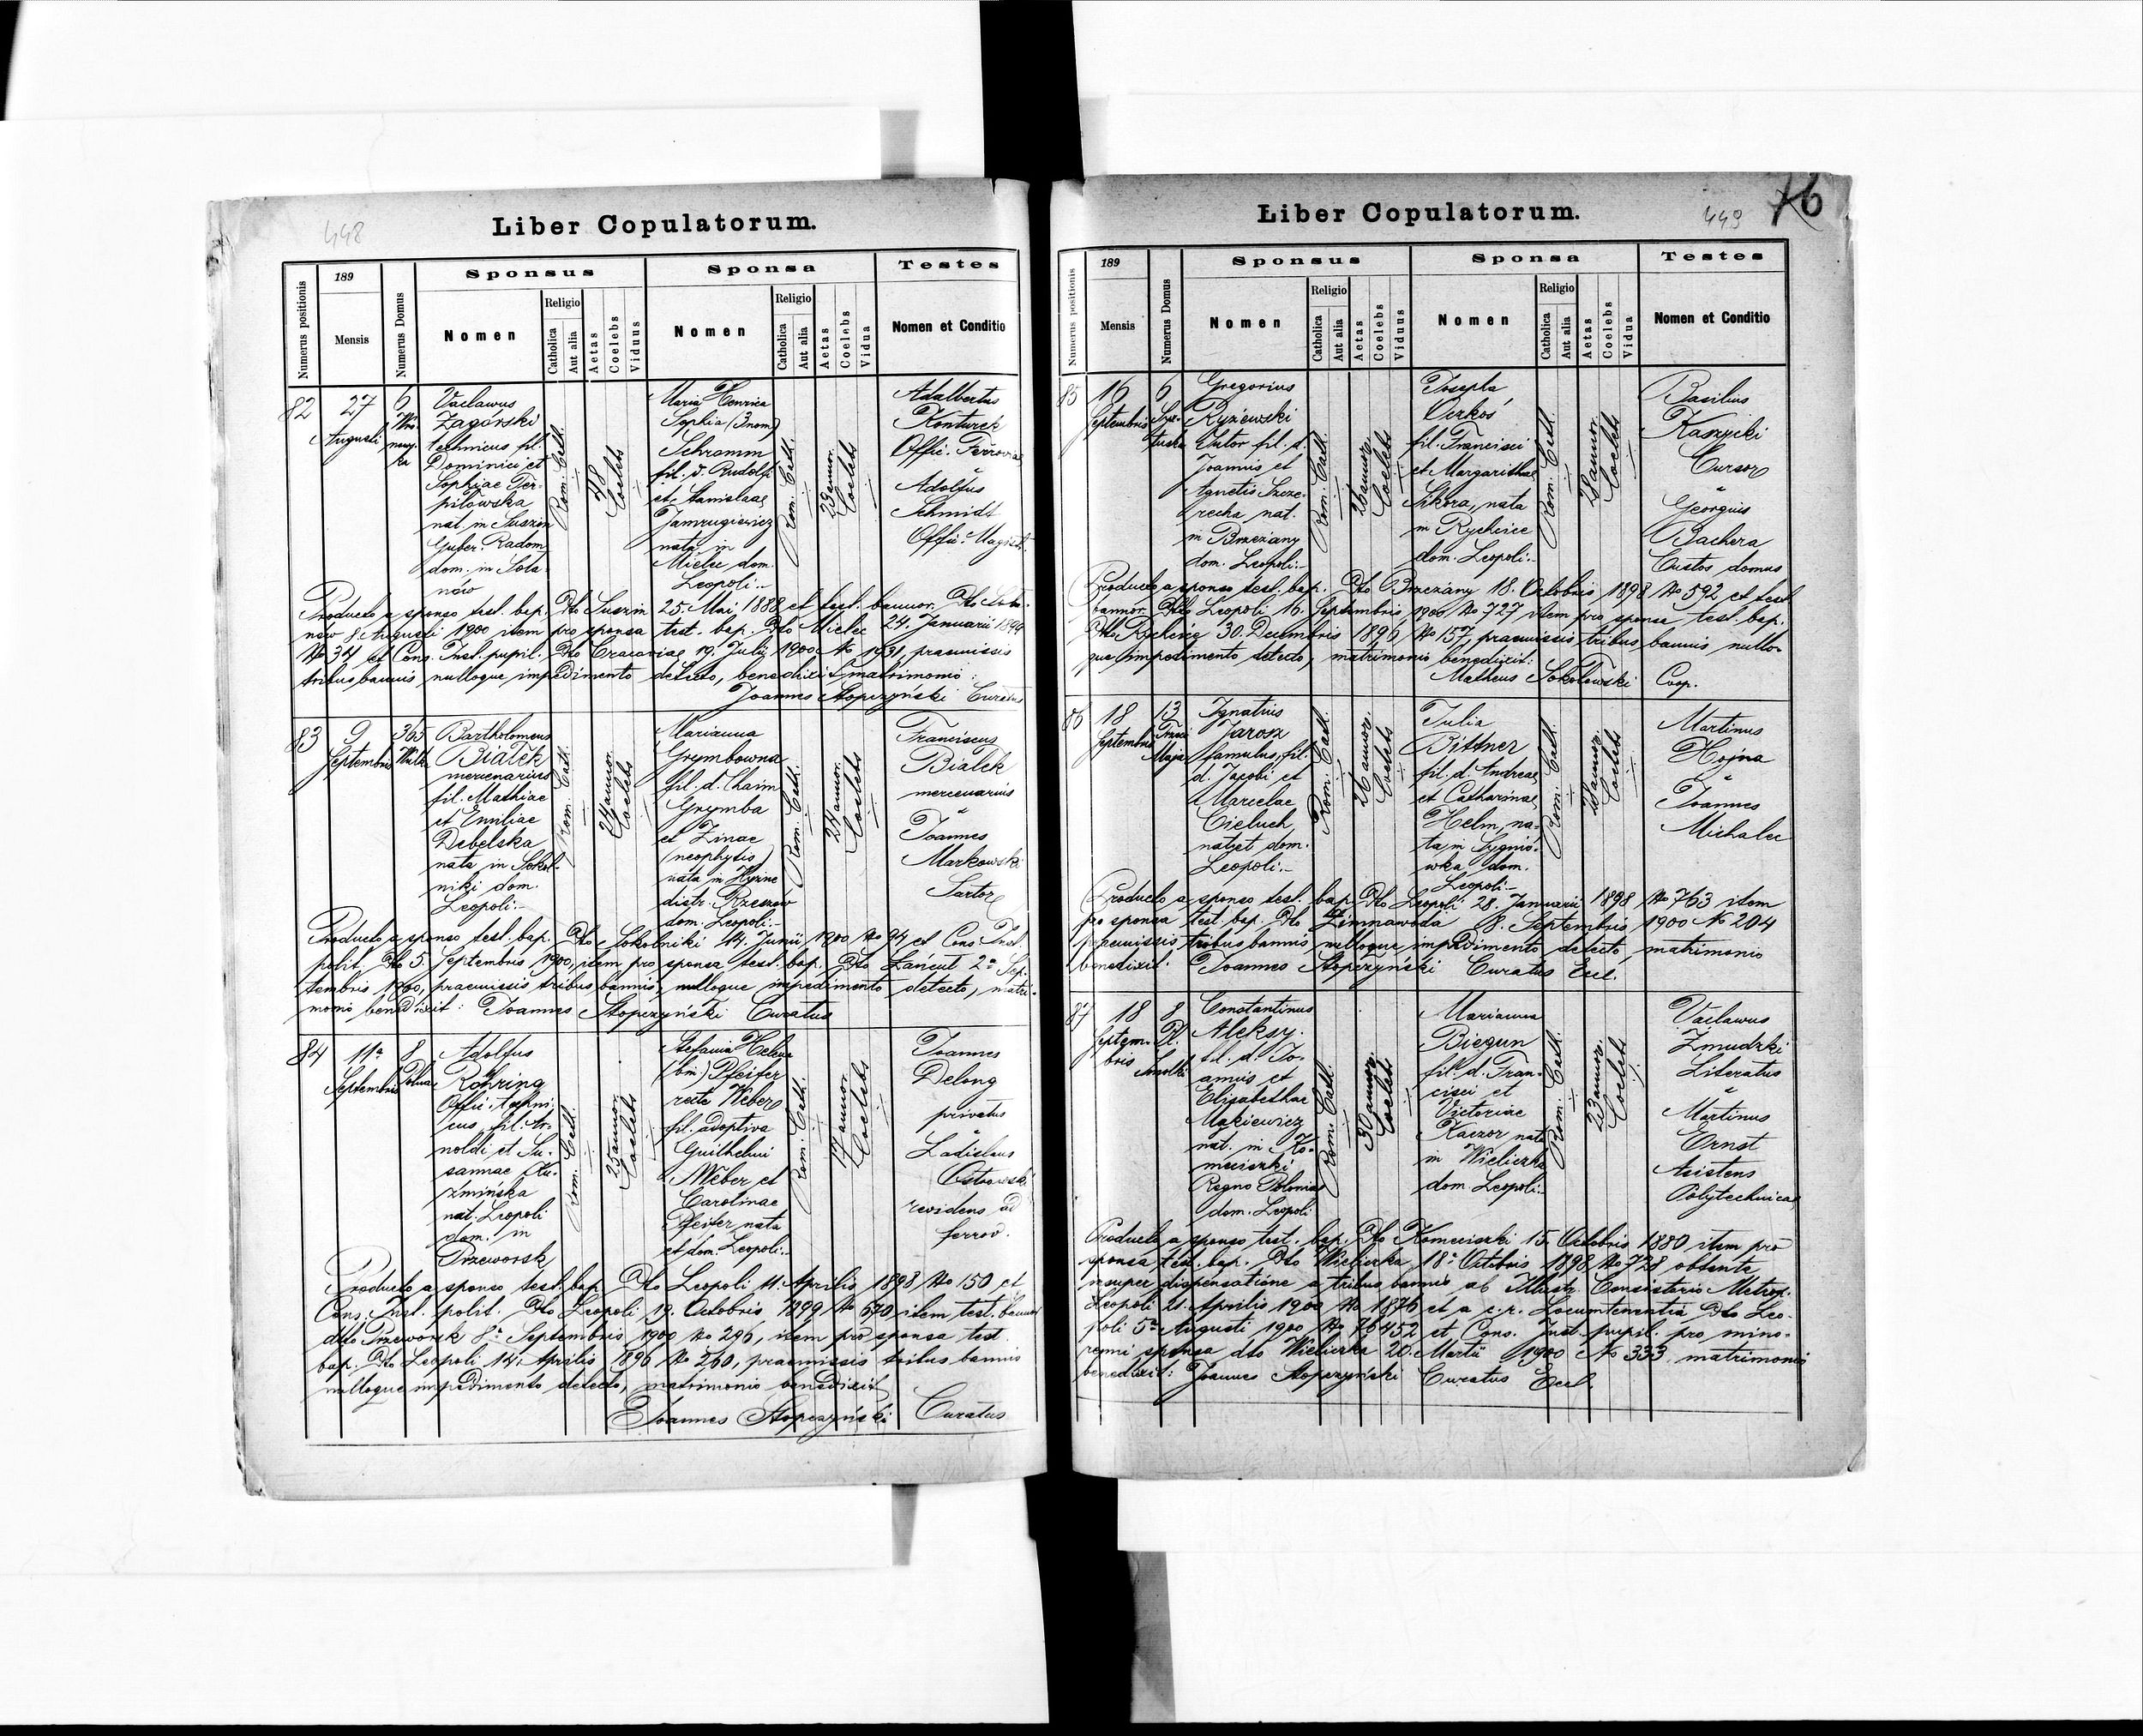 448
Liber Copulatorum.
Numerus positionis
189
Mensis
Numerus Domus
Sponsus
Nomen
Religio
Catholica
Aut alia
Aetas
Coelebs
Viduus
Sponsa
Nomen
Religio
Catholica
Aut alia
Aetas
Coelebs
Vidua
Testes
Nomen et Conditio
82
27
Augusti
6
Vaclawus
Zagórski
technicus fil.
Dominici et
Sophiae Ter-
piłowska
nat. in Suszin
Guber. Radom
dom. in Sota-
nów
Rom. Cath.
48
Coelebs
Maria Henrica
Sophia (3 nom)
Schramm
fil. d. Rudolfi
et Stanislaae
Jamrugiewicz
nata in
Mielec dom.
Leopoli.-
Rom. Cath.
23 annor.
Coelebs
Adalbertus
Konturek
Offic. Ferroviae
Adolfus
Schmidt
Offic. Magist.
Producto a sponso test. bap. Dto Suszin 25. Mai 1888 et test. bannor. Dto Sota-
nów 8. Augusti 1900 item pro sponsa test. bap. Dto Mielec 24. Januarii 1899
No 34 et Cons. Inst. pupil. Dto Cracoviae 19. Julii 1900 No 1931, praemissis
tribus bannis nulloque impedimento detecto, benedixit matrimonio:
Joannes Stopczyński Curatus
83
9
Septembris
365
Wulk
Bartholomeus
Białek
mercenarius
fil. Mathiae
et Emiliae
Debelska
nata in Sokol-
niki dom.
Leopoli.-
Rom. Cath.
24 annor.
Coelebs
Marianna
Grymbowna
fil. d. Chaim
Grymba
et Zinae
(neophytis)
nata in Hyzne
distr. Rzeszów
dom. Leopoli.-
Rom. Cath.
24 annor.
Coelebs
Franciscus
Białek
mercenarius
Joannes
Markowski
Sartor
Producto a sponso test. bap. Dto Sokolniki 14. Junii 1900 No 94 et Cons. Inst.
polit. Dto 5. Septembris 1900, item pro sponsa test. bap. Dto Łańcut 2a Sep-
tembris 1900, praemissis tribus bannis, nulloque impedimento detecto, matri-
monio benedixit: Joannes Stopczyński Curatus
84
11a
Septembris
8
Adolfus
Röhring
Offic. techni-
cus, fil. Ar-
noldi et Su-
sannae Ku-
źmińska
nat. Leopoli
dom. in
Przeworsk
Rom. Cath.
25 annor.
Coelebs
Stefania Helena
(bin.) Pfeifer
recte Weber
fil. adoptiva
Guilhelmi
Weber et
Carolinae
Pfeifer nata
et dom. Leopoli.-
Rom. Cath.
17 annor.
Coelebs
Joannes
Delong
privatus
Ladislaus
Ostrowski
revidens ad
ferrov.
Producto a sponso test. bap. Dto Leopoli 11. Aprilis 1898 No 150 et
Cons. Inst. polit. Dto Leopoli 19. Octobris 1899 No 670, item test. bannor
dto Przeworsk 8a Septembris 1900 No 296, item pro sponsa test.
bap. Dto Leopoli 14. Aprilis 1896 No 260, praemissis tribus bannis
nulloque impedimento detecto, matrimonio benedixit
Joannes Stopczyński Curatus
449
76
Liber Copulatorum.
Numerus positionis
189
Mensis
Numerus Domus
Sponsus
Nomen
Religio
Catholica
Aut alia
Aetas
Coelebs
Viduus
Sponsa
Nomen
Religio
Catholica
Aut alia
Aetas
Coelebs
Vidua
Testes
Nomen et Conditio
85
16
Septembris
6
Gregorius
Ryżewski
Sutor fil. d.
Joannis et
Agnetis Szcze-
recha nat.
in Brzeżany
dom. Leopoli.-
Rom. Cath.
26 annor.
Coelebs
Josepha
fil. Francisci
et Margarithae
Sikora, nata
in Rychcice
dom. Leopoli.-
Rom. Cath.
28 annor.
Coelebs
Basilius
Kaszycki
Cursor
Georgius
Bachera
Custos domus
Producto a sponso test. bap. Dto Brzeżany 18. Octobris 1898 No 592 et test.
bannor. Dto Leopoli 16. Septembris 1900 No 727 item pro sponsa test. bap.
Dto Rychcice 30. Decembris 1896 No 157, praemissis tribus bannis nullo-
que impedimento detecto, matrimonio benedixit:
Matheus Sokołowski Coop.
86
18
Septembris
13
Ignatius
Jarosz
famulus, fil.
d. Jacobi et
Marcelae
Cieluch
nat. et dom.
Leopoli.-
Rom. Cath.
26 annor.
Coelebs
Julia
Bittner
fil. d. Andreae
et Catharinae
Helm, na-
ta in Sygnió-
wka dom.
Leopoli.-
Rom. Cath.
Coelebs
Martinus
Hojna
Joannes
Michalec
Producto a sponso test. bap. Dto Leopoli 28. Januarii 1898 No 763 item
pro sponsa test. bap. Dto Zimnawoda 8. Septembris 1900 No 204
praemissis tribus bannis nulloque impedimento detecto, matrimonio
benedixit. Joannes Stopczyński Curatus Eccl.
87
18
Septem-
bris
8
Pl.
Smolki
Constantinus
Aleksy.
fil. d. Jo-
annis et
Elisabethae
Makiewicz
nat. in Ko-
mieciszki
Regno Poloniae
dom. Leopoli
Rom. Cath.
30 annor.
Coelebs
Marianna
Biegun
fil. d. Fran-
cisci et
Victoriae
Kaczor nata
in Wieliczka
dom. Leopoli.-
Rom. Cath.
23 annor.
Coelebs
Vaclawus
Zmudzki
Literatus
Martinus
Ernst
Asistens
Polytechnicae
Producto a sponso test. bap. Dto Komieciszki 15. Octobris 1880 item pro
sponsa test. bap. Dto Wieliczka 18a Octobris 1898 No 728 obtenta
insuper dispensatione a tribus bannis ab Illustr. Consistorio Metrop.
Leopoli 21. Aprilis 1900 No 1876 et a c. r. Locumtenentia Dto Leo-
poli 5a Augusti 1900 No 76452 et Cons. Inst. pupil. pro mino-
renni sponsa dto Wieliczka 20. Martii 1900 No 333 matrimonio
benedixit: Joannes Stopczyński Curatus Eccl.